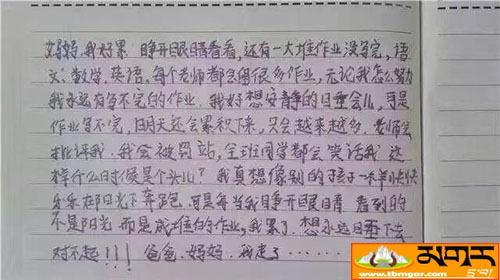 妈妈,我好累 睁开眼睛看看,还有一大堆作业没写完,语
文、数学、英语,每个老师都会留很多作业,无论我怎么努力
我永远有写不完的作业.我好想安静的日睡会儿,可是
作业写不完,明天还会累积下来,只会越来越多.老师会
批评我.我会被罚站,全班同学都会笑话我 这
样什么时候是个头儿?我真想像别的孩子一样快快
乐乐在阳光下奔跑 可是每当我睁开眼睛 看到的
不是阳光 而是成堆的作业,我累了.想永远日睡下去
对不起!!!爸爸.妈妈.我走了……
www.tbmgar.com